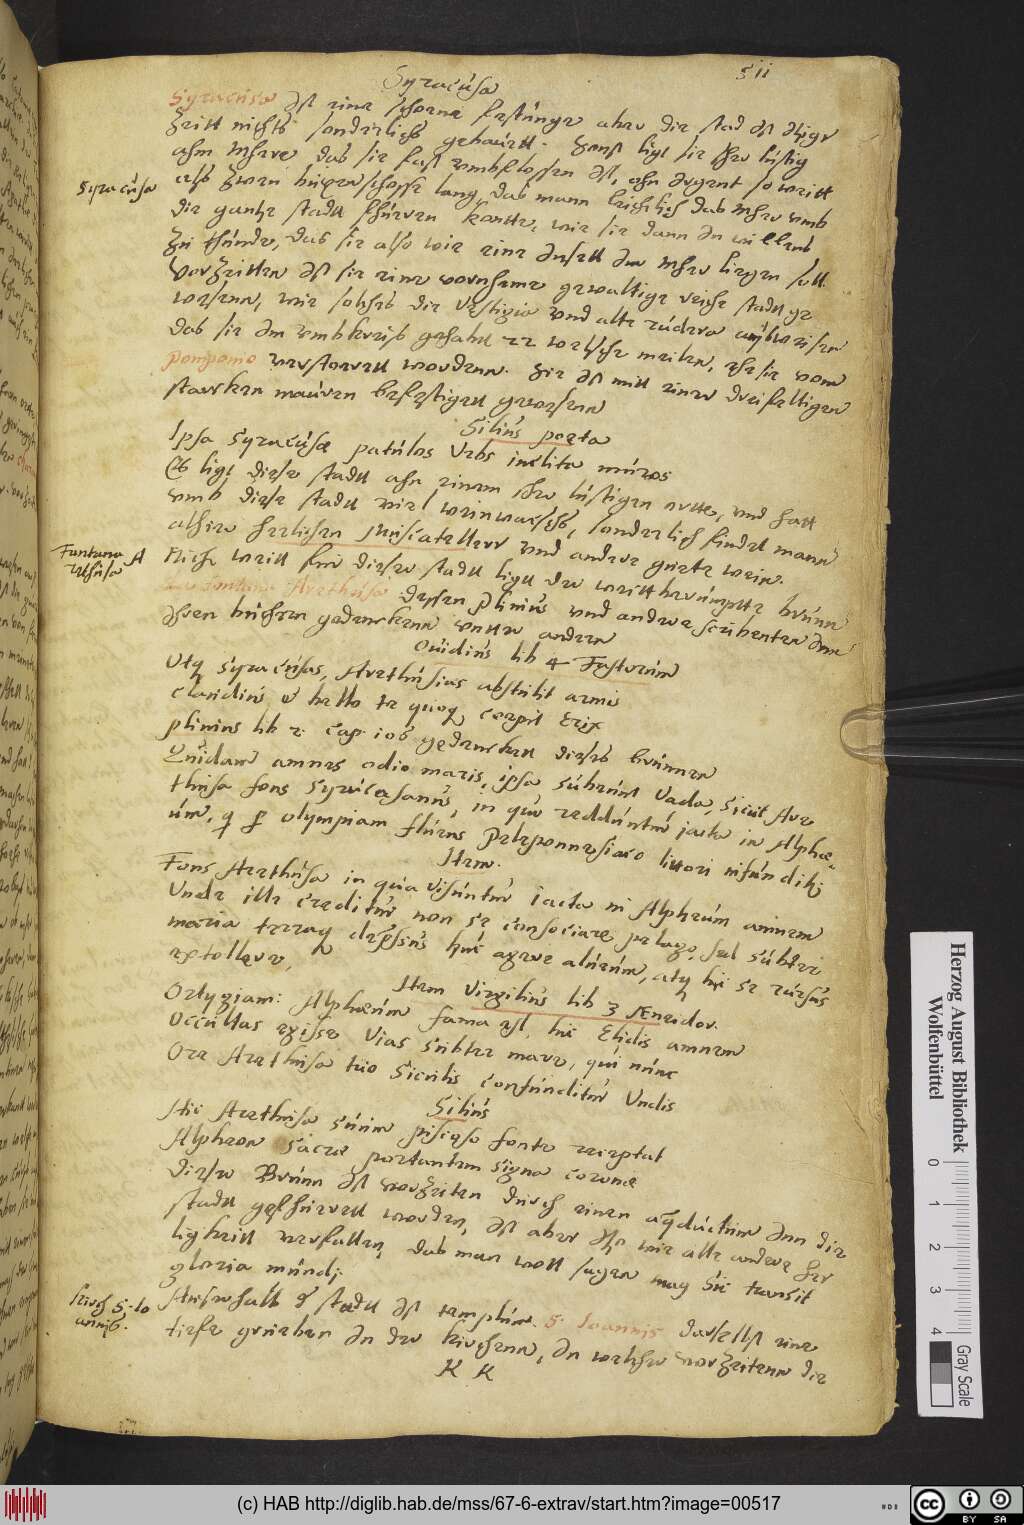 511
Syracusa
Syracusa Ist eine schoene festunge aber die stad ist itziger
Zeitt nichts sonderliches gebauett. Sonst ligt sie sher lustig
ahm Mhere das sie fast umbflossen ist, ahn irgent so weitt
als zwei buxenschosse lang, das mann leichtlich das Mher umb
Syracusa
die gantze stadtt fhueren kontte, wie sie dann in willens
zu thunde, das sie also wie eine Insell im Mher liegen soll.
Vorzeitten ist sie eine vornheme gewaltige reiche stadtt ge
wesenn, wie solches die vestigia und alte ruders ausweisen
das sie im umbkreis gehabtt 22 welsche meilen, ehe sie vom
Pompeio verstoerett wordenn. Sie ist mitt einer dreifeltigen
starcken mauren befestigett gewesenn
Silius poeta
Ipsa Syracusae patulos Urbs inclita muros
Es ligt diese stadtt ahn einem sher lustigen ortte, und hatt
umb diese stadtt viel weinwachs, sonderlich findet mann
alhier herlichen Muscateller und andere guete wein.
Fontana Arethusa
Nich weitt fur dieser stadtt ligtt der weittberumpte brunn
La fontana Arethusa dessen Plinius und andere scribenten inn
ihren buchern gedenckenn untter andern
Ovidius lib 4 Fastorum
Utq Syracusas, Arethusias abstulit armis
Claudius et bello te quoq cepit Erix
plinius lib 2. cap. 103 gedenckett dieses brunnen
Quidam amnes odio maris, ipsa subeunt vada, sicut Are
thusa fons Syracusanus, in quo redduntur jacta in Alphe-
um, q p olympiam fluens Peleponnesiaco littori infunditur
Item.
Fons Arethusa in qua visuntur iacta in Alpheum amnem
Unde ille creditur non se consociare pelago, sed subter
maria terrasq depressus huc agere alueum, atq hic se rursus
extollere,
Item Virgilius lib 3 Æneidos.
Ortygiam: Alphaeum fama est, huc Elidis amnem
Occultas egisse vias subter mare, qui nunc
Ore Arethusa tuo Siculis confunditur undis
Silius
Hic Arethusa suum piscoso fonte receptat
Alpheon sacrae portantem signa coronae
Dieser Brunn ist vorzeiten durch einen aqductum inn die
stadtt gefhuerett worden, ist aber itzo wie alte andere her
ligkeitt verfallen, das man woll sagen mag sic transit
gloria mundi
Kirch S. Jo
annis.
Ausserhalb d stadtt ist templum S. Joannis daselbst eine
tieffe grueben in der kirchenn, in welcher vorzeitenn die
K K
Herzog August Bibliothek
Wolfenbüttel
0 1 2 3 4
Gray Scale
(c) HAB http://diglib.hab.de/mss/67-6-extrav/start.htm?image=00517
cc BY SA